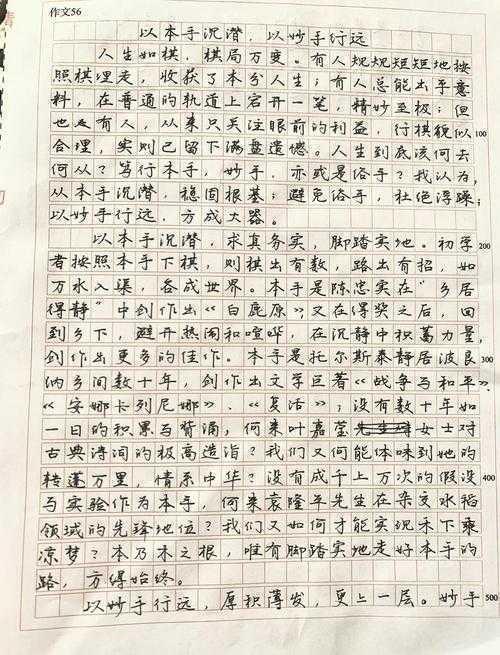 作文56
以本手沉潜，以妙手行远
人生如棋，棋局万变。有人规规矩矩地按
照棋理走，收获了本分人生；有人总能出乎意
料，在普通的轨道上宕开一笔，精妙至极；但
也是有人，从来只关注眼前的利益，行棋貌似
100
合理，实则已留下满盘遗憾。人生到底该何去
何从？笃行本手，妙手，亦或是俗手？我认为，
从本手沉潜，稳固根基；避免俗手，杜绝浮躁；
以妙手行远，方成大器。
以本手沉潜，求真务实，脚踏实地。初学
200
者按照本手下棋，则棋出有数，路出有招，如
万水入渠，各成世界。本手是陈忠实在“乡居
得静”中创作出《白鹿原》又在得奖之后，回
到乡下，避开热闹和喧哗，在沉静中积蓄力量，
创作出更多的佳作。本手是托尔斯泰静居波良
300
纳乡间数十年，创作出文学巨著《战争与和平》
《安娜卡列尼娜》、《复活》；没有数十年如
一日的积累与背诵，何来叶嘉莹女士对
古典诗词的极高造诣？我们又何能体味到她的
转蓬万里，情系中华？没有成千上万次的假设
400
与实验作为本手，何来袁隆平先生在杂交水稻
领域的先锋地位？我们又如何才能实现禾下乘
凉梦？本乃木之根，唯有脚踏实地走好本手的
路，方得始终。
以妙手行远，厚积薄发，更上一层。妙手
500